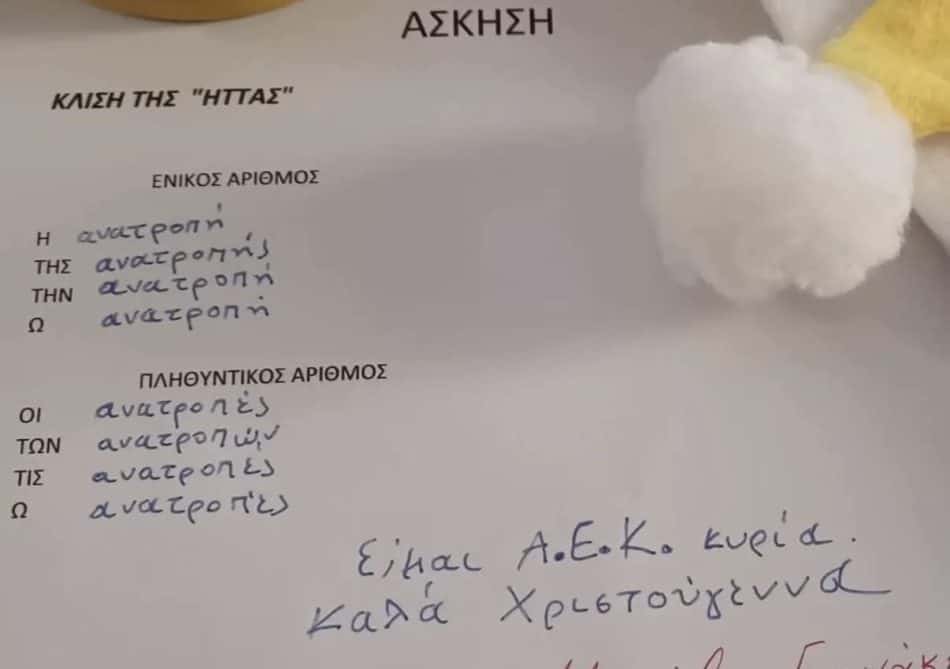 ΑΣΚΗΣΗ
ΚΛΙΣΗ ΤΗΣ "ΗΤΤΑΣ"
ΕΝΙΚΟΣ ΑΡΙΘΜΟΣ
Η ανατροπή
ΤΗΣ ανατροπής
ΤΗΝ ανατροπή
Ω ανατροπή
ΠΛΗΘΥΝΤΙΚΟΣ ΑΡΙΘΜΟΣ
ΟΙ ανατροπές
ΤΩΝ ανατροπών
ΤΙΣ ανατροπές
Ω ανατροπές
Είμαι Α.Ε.Κ. κυρία.
Καλά Χριστούγεννα